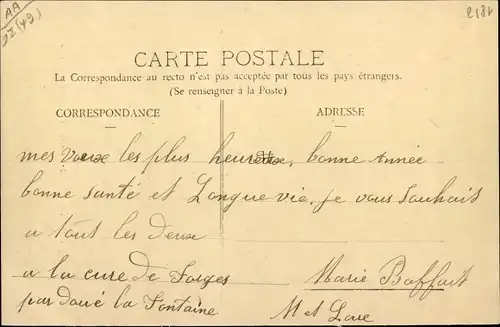 AA
2184
CARTE POSTALE
La Correspondance au recto n'est pas acceptée par tous les pays étrangers.
(Se renseigner à la Poste)
CORRESPONDANCE
ADRESSE
mes les plus bonne Année
bonne santé et Longue vie, je vous Souhait
a tout les Deux
a la cure de Forges Marie Baffait
par Doué la Fontaine M et Loire